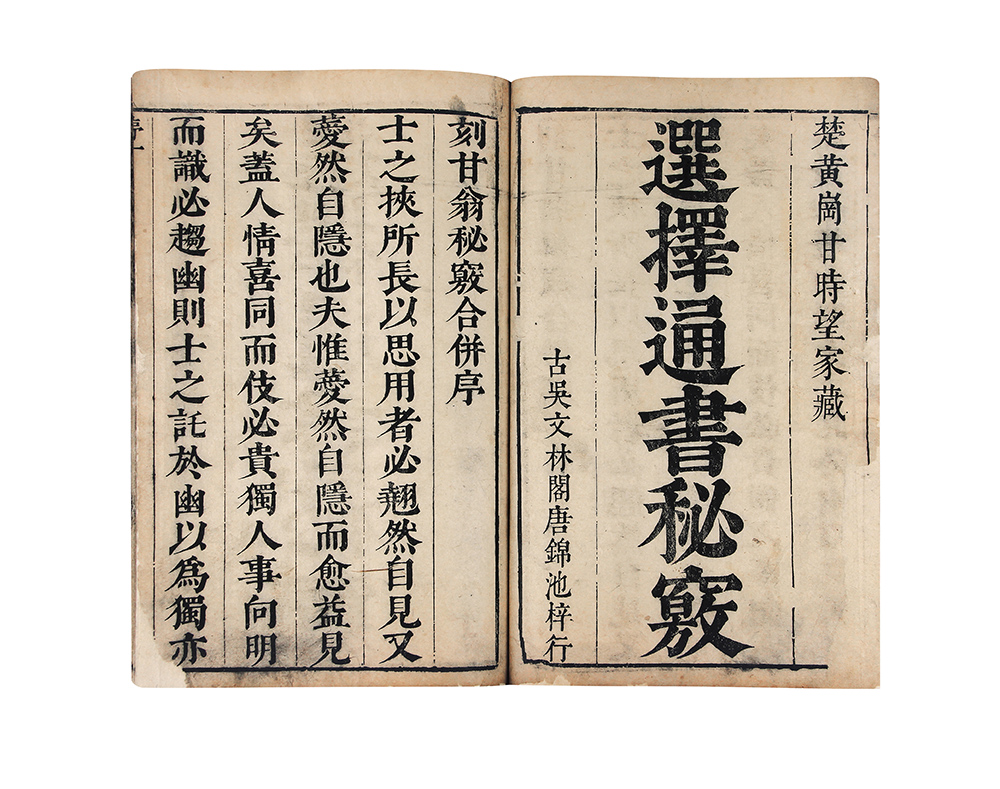 楚黃崗甘時望家藏
選擇通書秘竅
古吳文林閣唐錦池梓行
刻甘翁秘竅合併序
士之挾所長以思用者必翹然自見又
薆然自隱也夫惟薆然自隱而愈益見
矣蓋人情喜同而伎必貴獨人事向明
而識必趨幽則士之託於幽以為獨亦